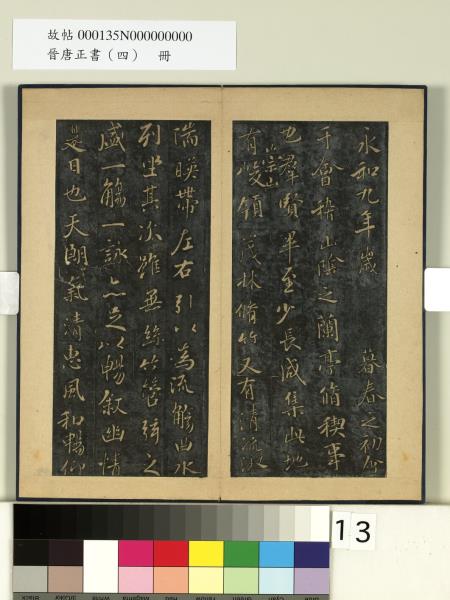 故帖 000135N000000000
晉唐正書（四） 冊
永和九年歲 暮春之初會
于會稽山陰之蘭亭脩稧事
也羣賢畢至少長咸集此地
崇山
有峻領茂林脩竹又有清流激
湍暎帶左右引以為流觴曲水
列坐其次雖無絲竹管弦之
盛一觴一詠亦足以暢敘幽情
是日也天朗氣清惠風和暢仰
13
Blue Cyan Green Yellow Red Magenta White 3/Color Black